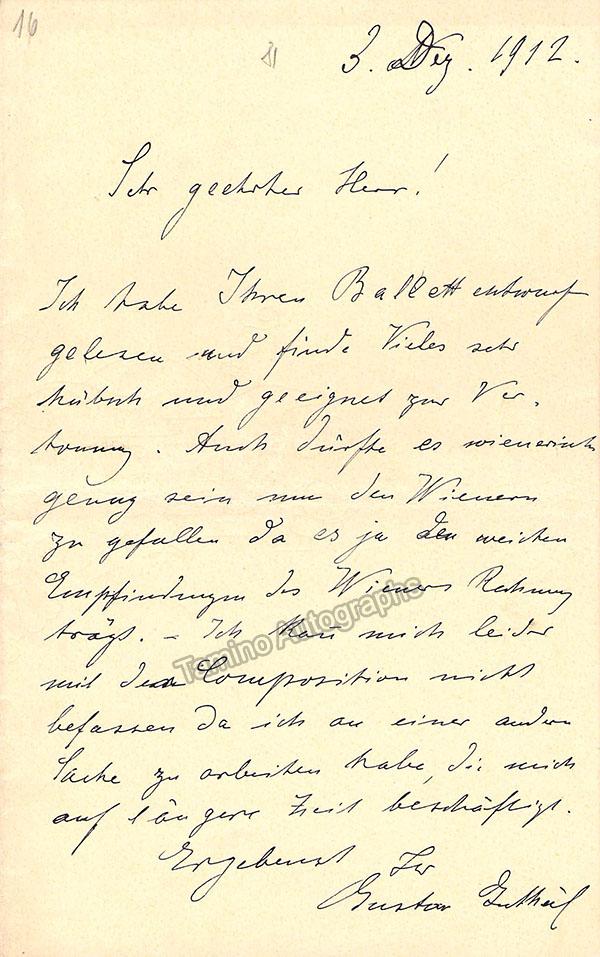 16
3. Dez. 1912.
Sehr geehrter Herr!
Ich habe Ihren Ballettentwurf
gelesen und finde Vieles sehr
hübsch und geeignet zur Ver-
tonung. Auch dürfte es wienerisch
genug sein um den Wienern
zu gefallen da es ja den weichen
Empfindungen des Wieners Rechnung
trägt. – Ich kan mich leider
mit der Composition nicht
befassen da ich an einer andern
Sache zu arbeiten habe, die mich
auf längere Zeit beschäftigt.
Ergebenst Ihr
Gustav Gutheil
Tamino Autographs